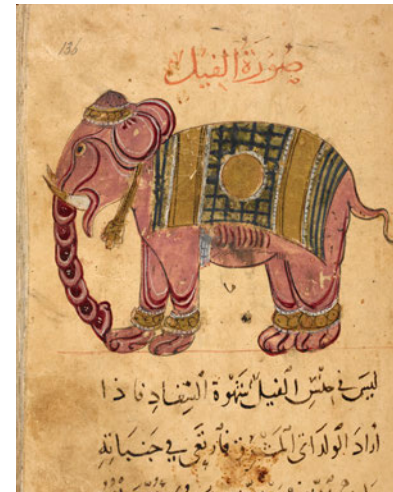 136
صورة الفيل
ليس في جنس الفيل شهوة السفاد فاذا
اراد الولد اتى المشرق فارتقى في جنباته